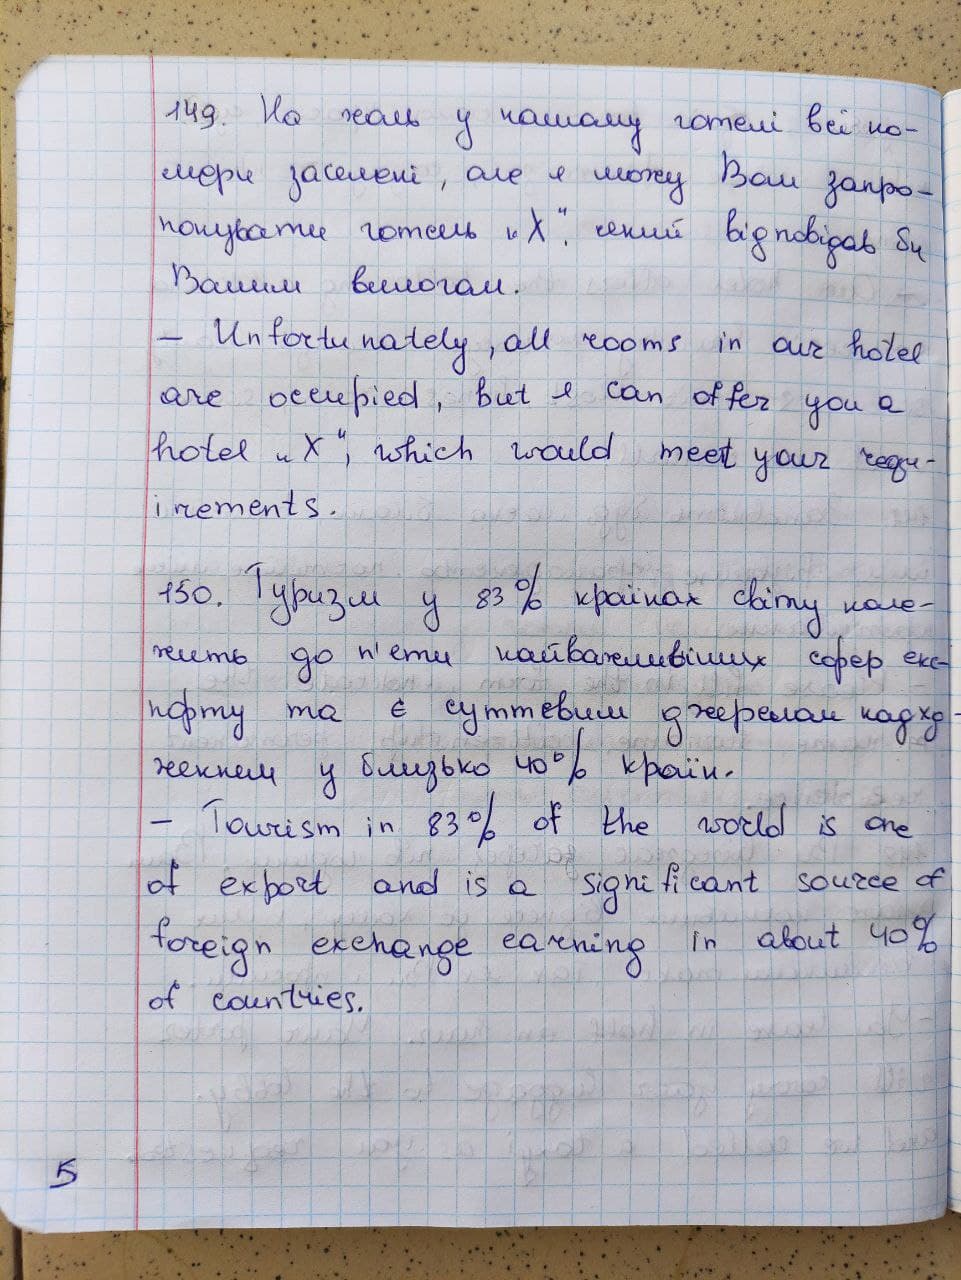 149. На жаль у нашому готелі всі но-
мери заселені, але я можу Вам запро-
понувати готель „X“, який відповідав би
Вашим вимогам.
– Unfortunately, all rooms in our hotel
are occupied, but I can offer you a
hotel „X“, which would meet your requ-
irements.
150. Туризм у 83% країнах світу нале-
жить до п'яти найважливіших сфер екс-
порту та є суттєвим джерелом надход-
женнем у близько 40% країн.
– Tourism in 83% of the world is one
of export and is a significant source of
foreign exchange earning in about 40%
of countries.
5